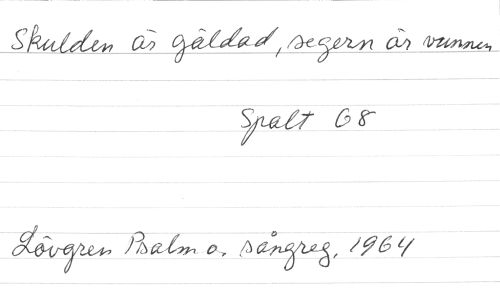 Skulden är gäldad, segern är vunnen
Spalt 68
Lövgren Psalm o. sångreg. 1964